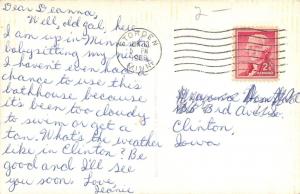 Dear Deanna,
Well, old gal, here
I am up in Minn.
babysitting my
I haven't even had a
chance to use this
bathhouse because
it's been too cloudy
to swim or get a
tan. What's the weather
like in Clinton? Be
good and I'll see
you soon. Love,
Jeanie
2
MINN.
2¢
3rd Ave.
Clinton,
Iowa